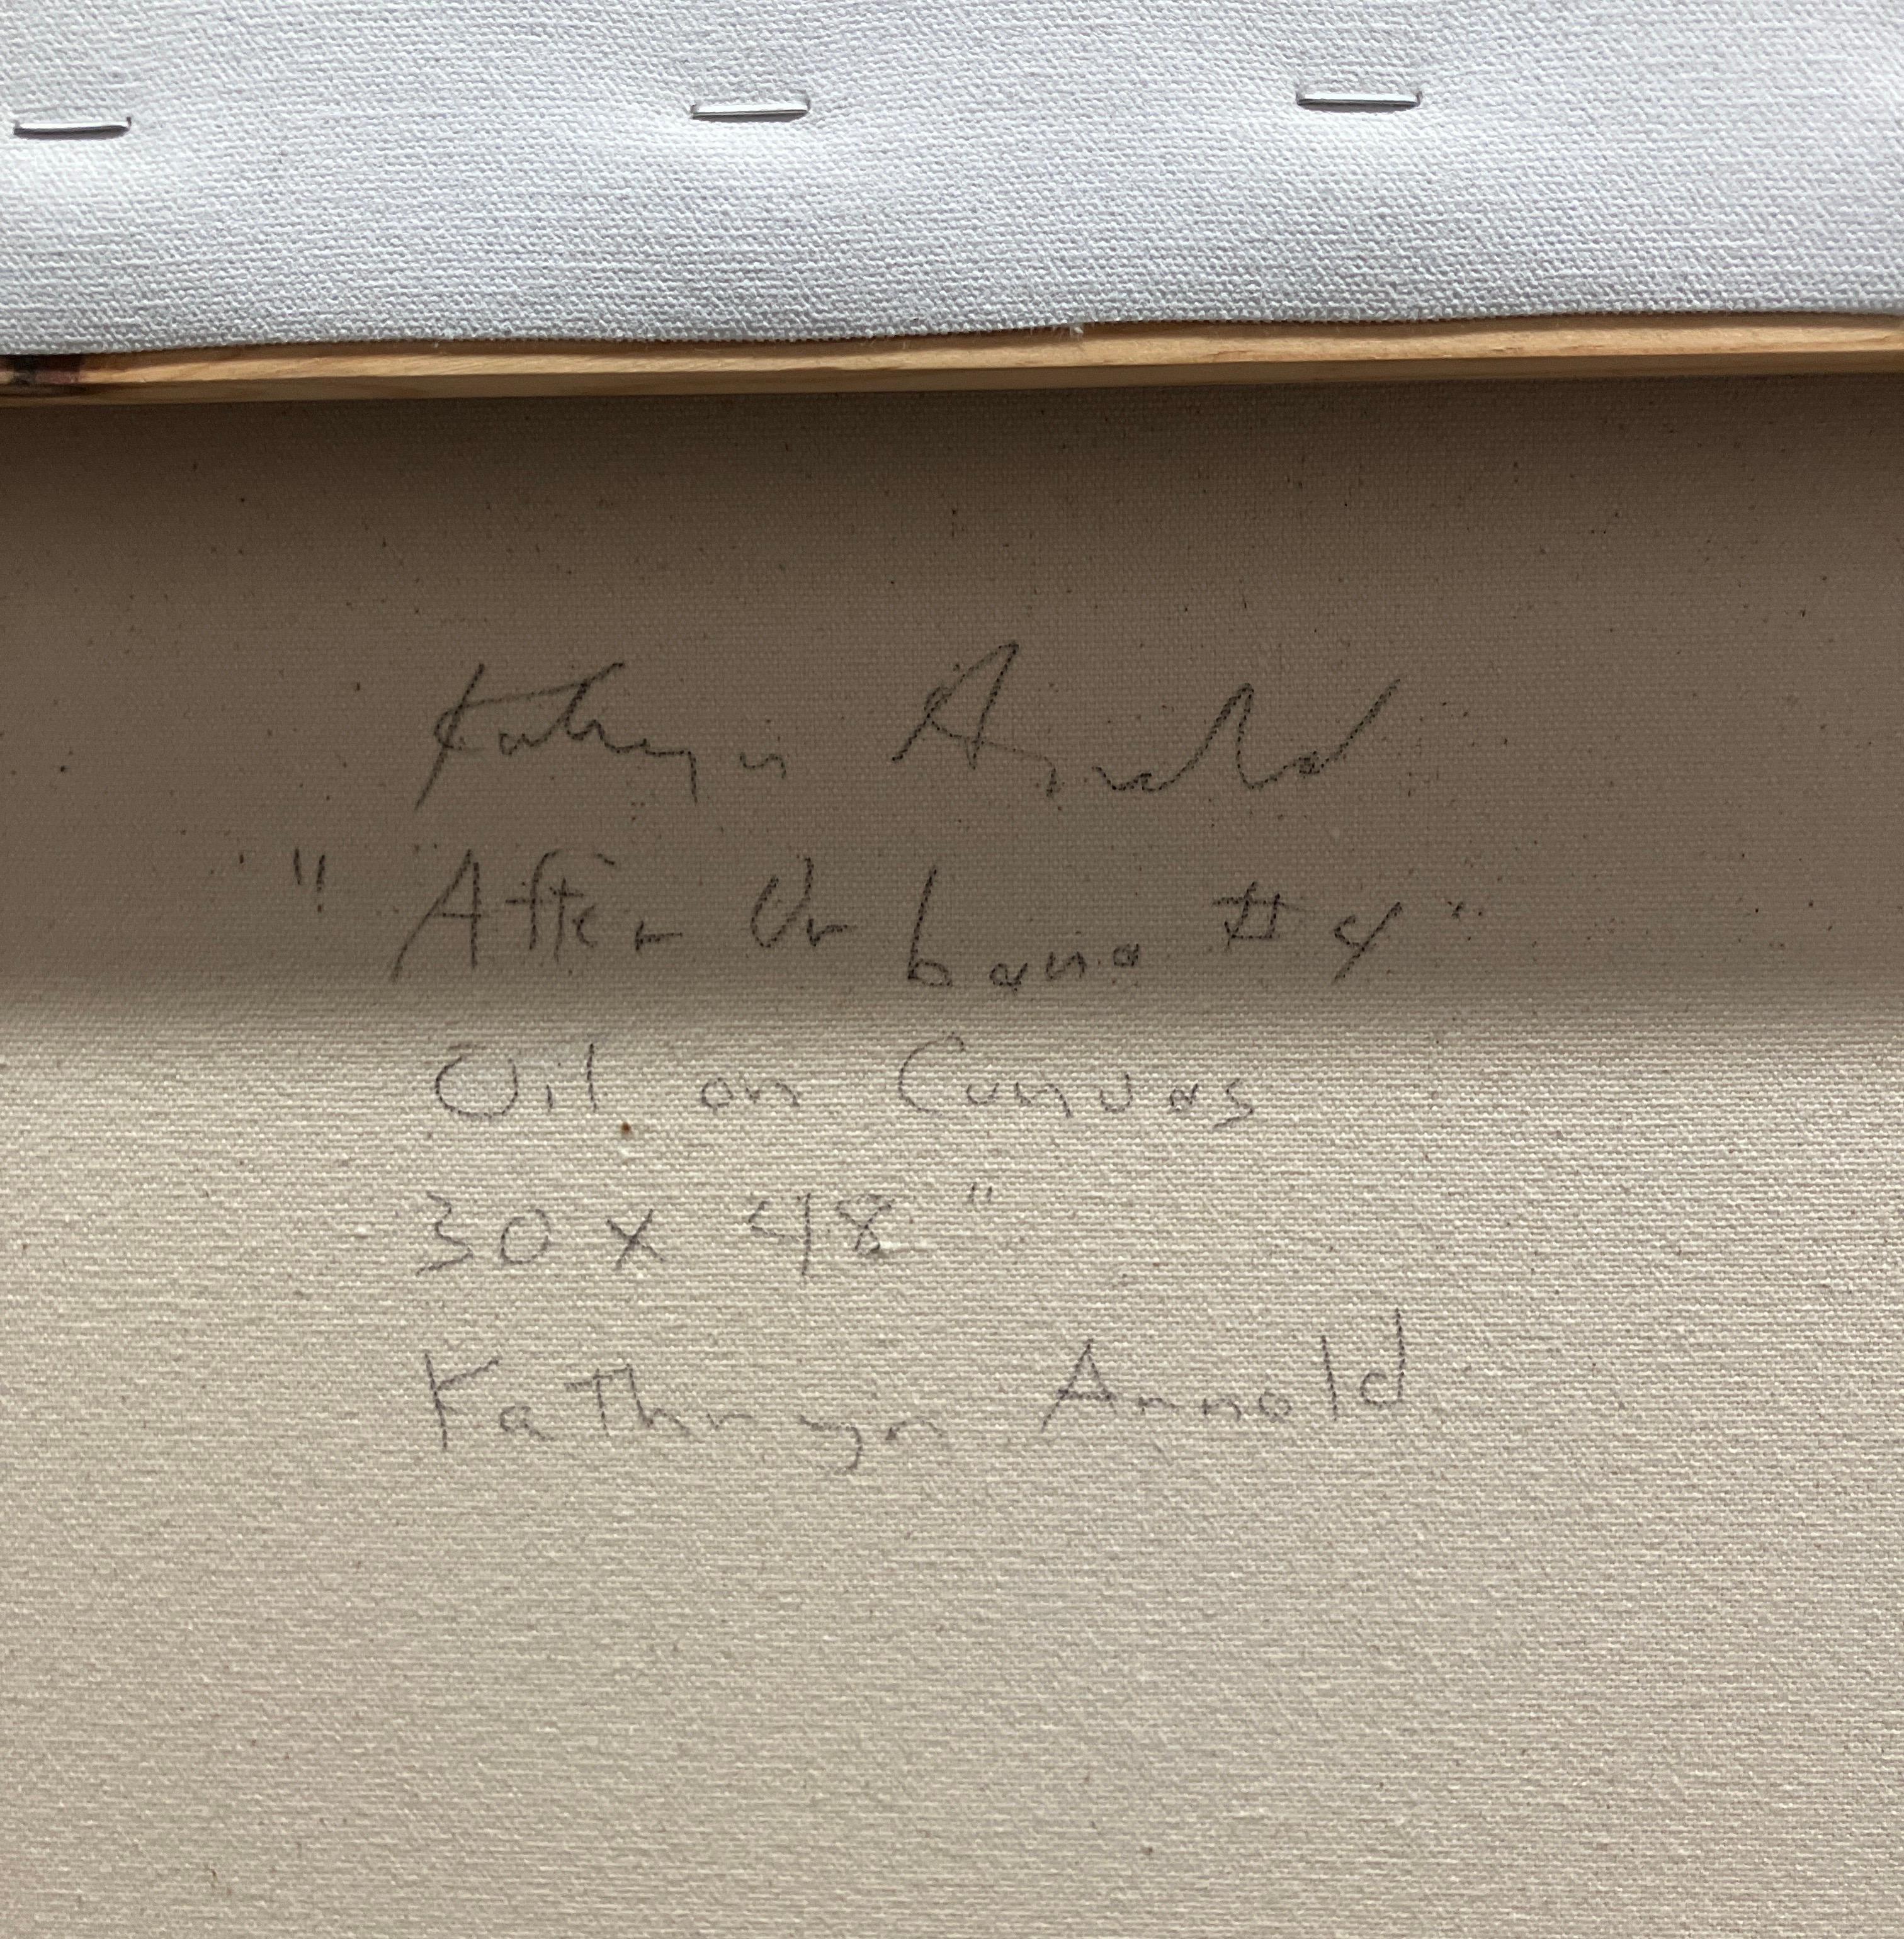 Kathryn Arnold
"After Urbana #4"
Oil on Canvas
30 x 48"
Kathryn Arnold